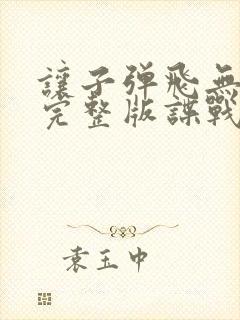 讓子弹飛無
完整版諜戰
袁玉中